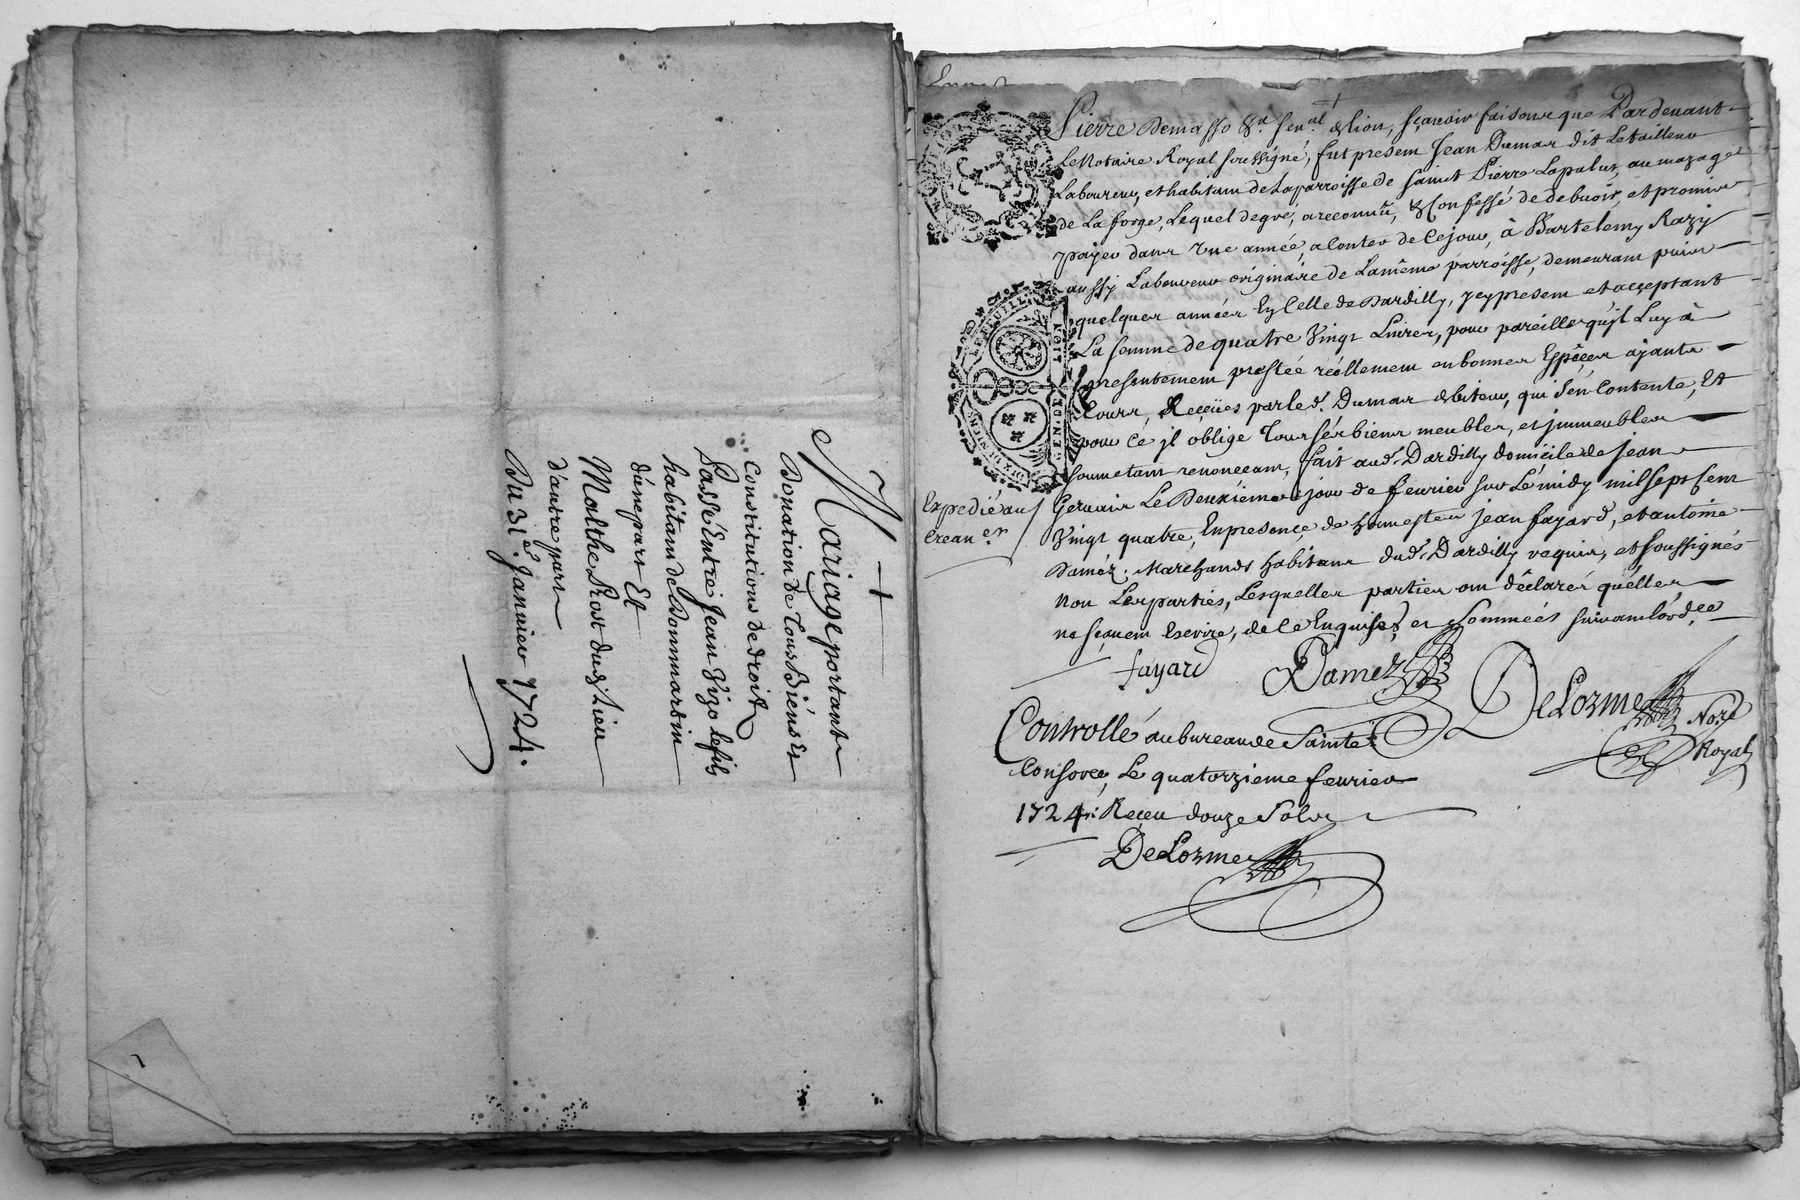 Mariage portant
Donation de Tous Biens Et
Constitutions de droit
Passé Entre Jean Vizo le fils
habitant de Dommartin
dúne part Et
Malthe Prost dud. Lieu
d'autre part
Du 31e. Janvier 1724.
Pierre Demasso &a. sen.al de lion, sçavoir faisons que Pardevant
Le Notaire Royal soussigné, fut present Jean Dumas dit Letailleur
Laboureur, et habitant de Laparroisse de saint Pierre Lapalus, au mazage
de La forge, Lequel degré, a reconnu, & Confessé de debvoir, et promis
payer dans Une année, a Conter de Cejour, à Bartelemy Razy
aussy Laboureur originaire de Lamême parroisse, demeurant puis
quelques années En Celle de Dardilly, jcy present et acceptant
La somme de quatre Vingt Livres, pour pareille qu'il Luy à
presentement prestée réellement en bonnes Espèces ayants
Cours, Reçües par led. Dumas debiteur, qui s'en Contente, Et
pour Cé jl oblige Tous sés biens meubles, et jmmeubles
soumetant renonceant, fait aud. Dardilly domicile de jean
Gervais Le Deuxiéme jour de fevrier sur Lé midy mil sept Cent
Vingt quatre, En presence de honnestes jean fayard, et antoine
Daméz. Marchands habitans dud. Dardilly requis, et soussignés
non Les parties, Lesquelles parties ont déclarés qu'elles
ne sçavent Escrire, de Ce Enquises, et sommées suivant L'ord.ce
Expedié au
Crean.er
fayard Damez DeLorme Not.re
Royal
Controllé au bureau de Sainte
Consorce, Le quatorzieme fevrier
1724. Reçeu douze Sols
DeLorme